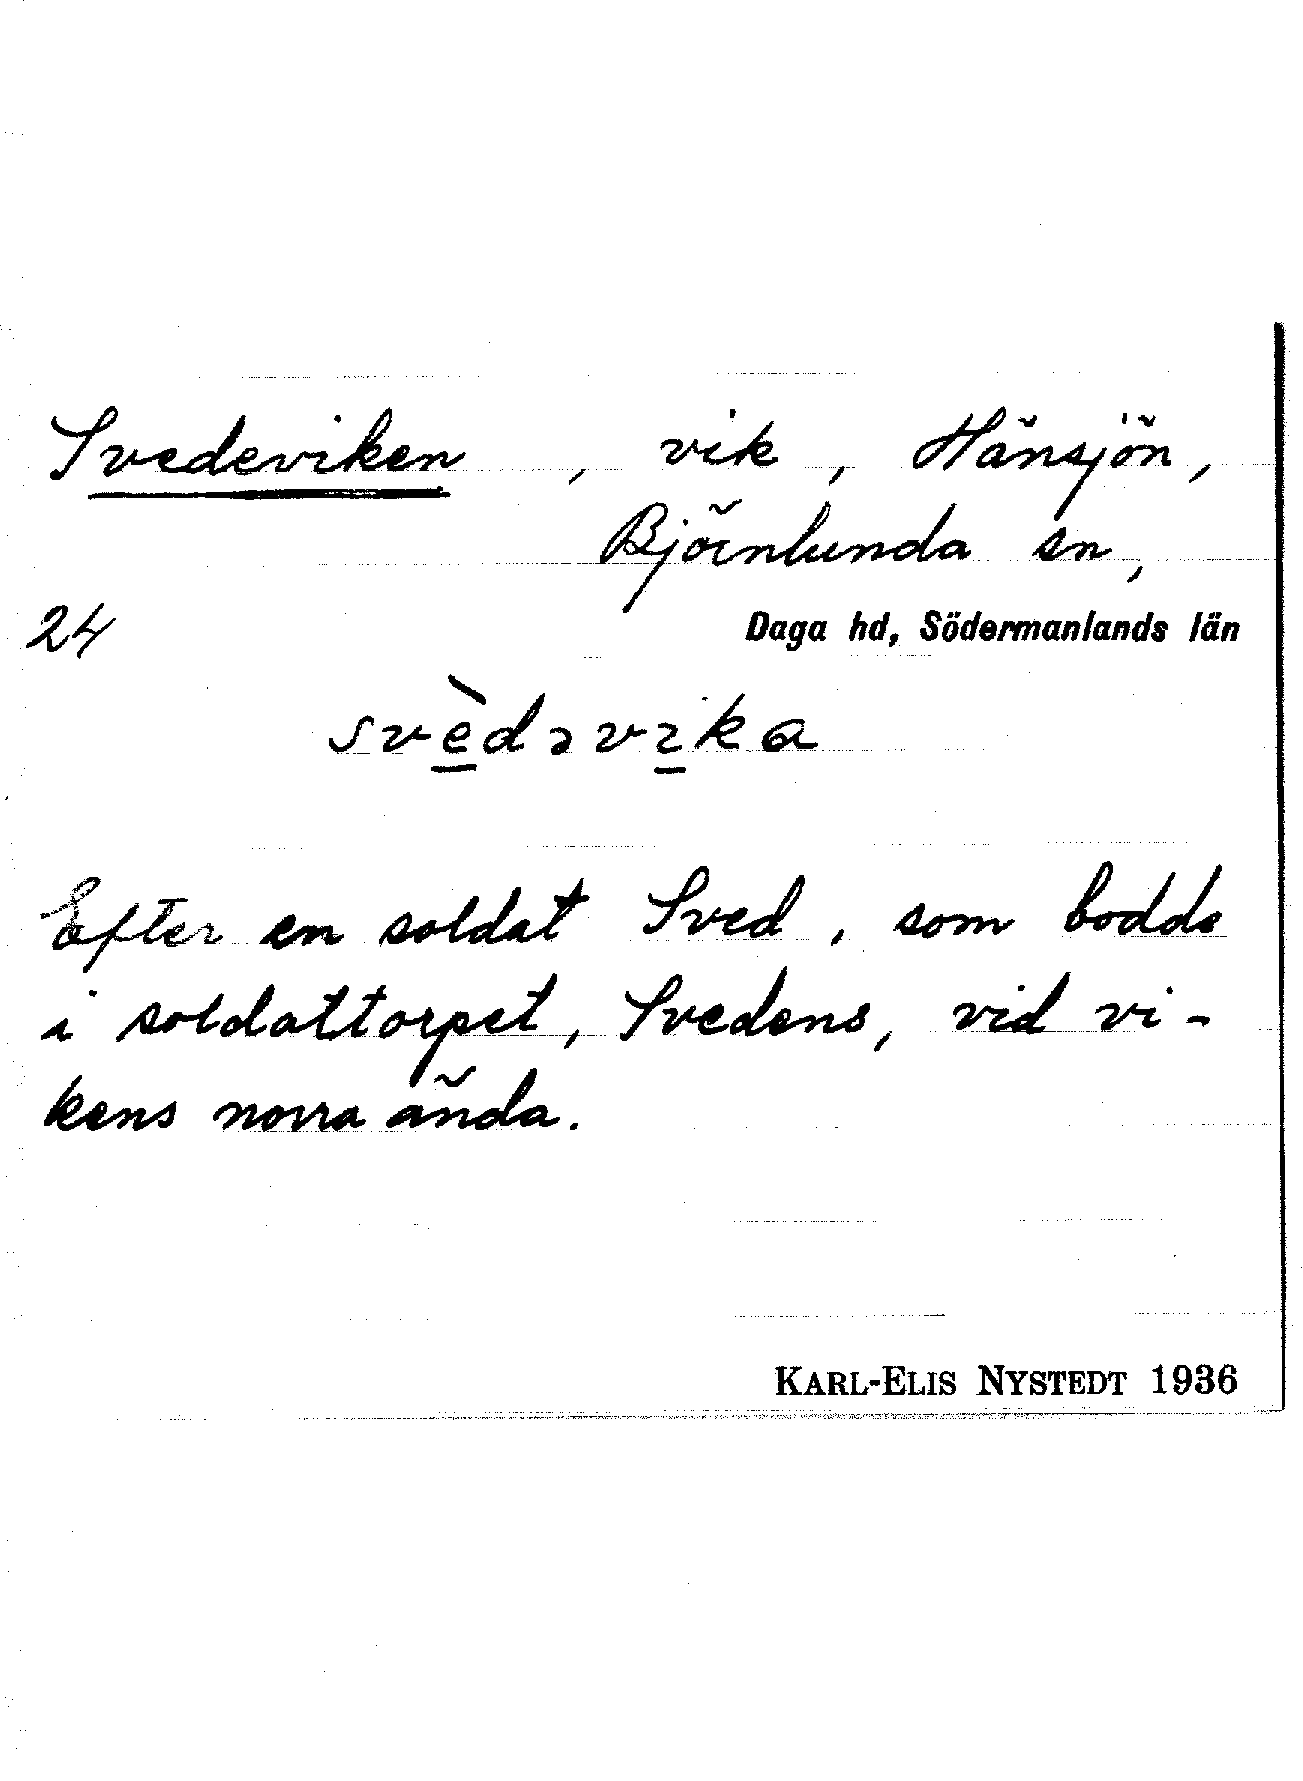 Svedeviken, vik, Hänsjön,
Björnlunda sn,
24
Daga hd, Södermanlands län
svèdəvika
Efter en soldat Sved, som bodde
i soldattorpet, Svedens, vid vi-
kens norra ända.
KARL-ELIS NYSTEDT 1936